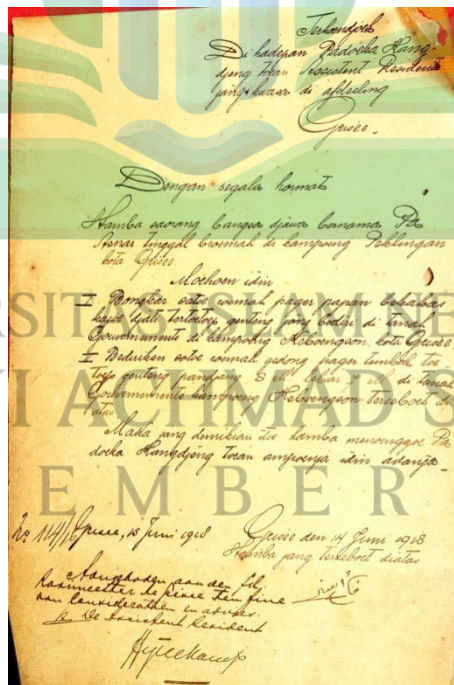 Terhoendjoek
Di hadepan Padoeka Kang-
djeng toean Assistent Resident
jang kwasa di afdeeling
Grisee.
Dengan segala hormat
Hamba saorang bangsa djawa bernama Pa
tinggal beroemah di kampoeng Peklingan
kota Grisee
Moehoen idin
I Bongkar satoe roemah pager papan
kajoe djati tertoetoep genteng jang berdiri di tanah
Gouvernement di kampoeng Keboengson, kota Grisee
II Berdirken satoe roemah gedong pager tembok
genteng pandjang 8 el lebar 7 el di tanah
Gouvernement kampoeng Keboengson terseboet di
atas
Maka jang demikian itoe hamba menoenggoe Pa
doeka Kangdjeng toean ampoenja idin adanja.
No 114/ Grisee, 15 Juni 1918
Grisee den 14 Juni 1918
Hamba jang terseboet diatas
Aangeboden aan den
ten fine
van consideratien en advies.
De Assistent Resident
SITAS ISLAM NE
I ACHMAD S
EMBER